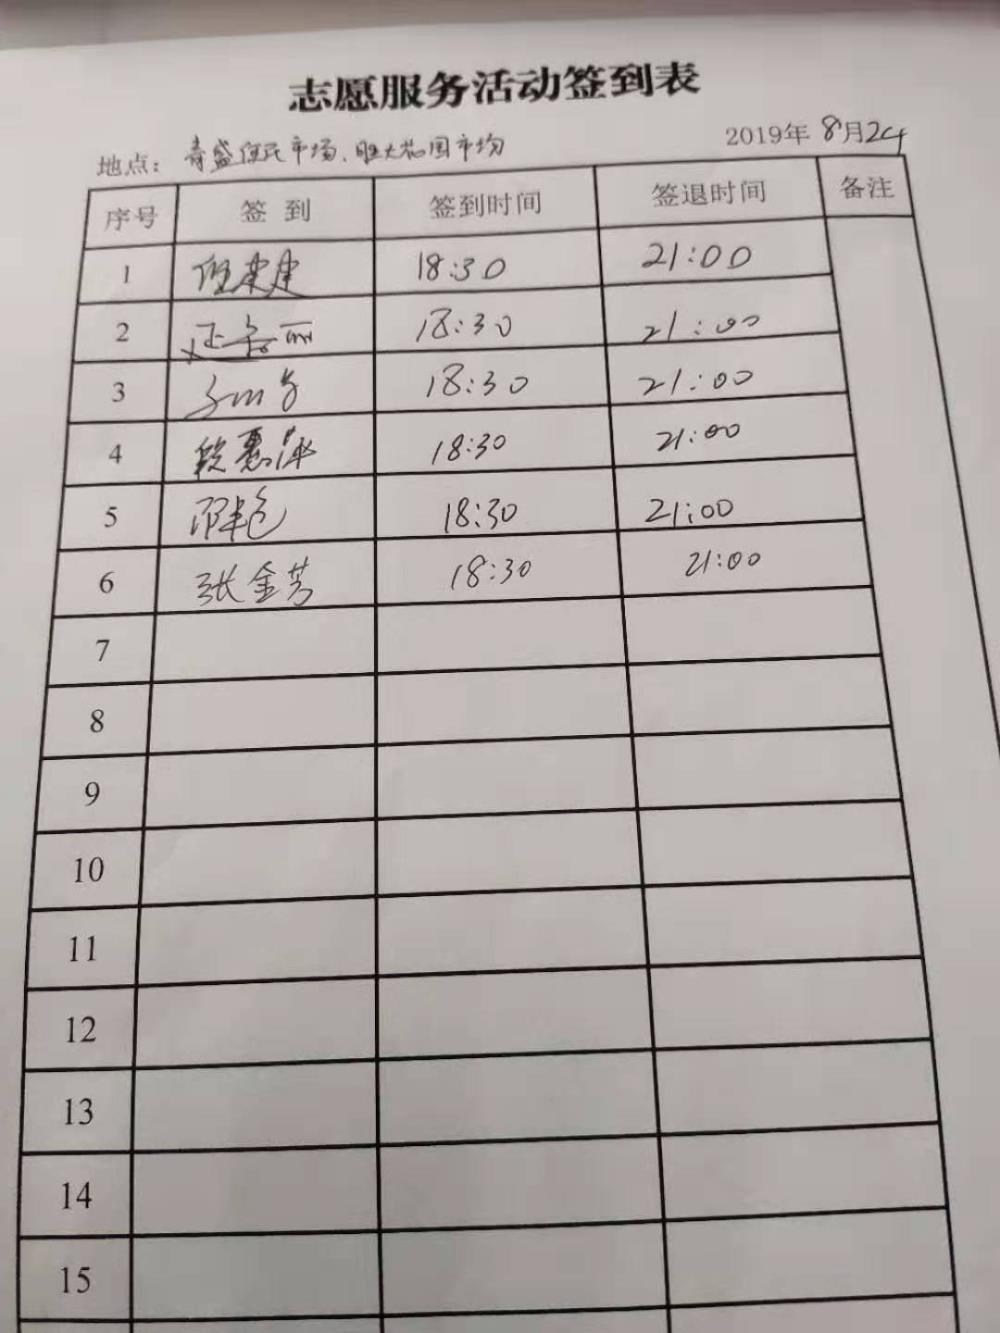 志愿服务活动签到表
地点： 青盛便民市场、胜大花园市场 2019年 8月24
序号 签 到 签到时间 签退时间 备注
1 建 18:30 21:00
2 丽 18:30 21:00
3 18:30 21:00
4 段惠萍 18:30 21:00
5 邵艳 18:30 21:00
6 张金芳 18:30 21:00
7
8
9
10
11
12
13
14
15